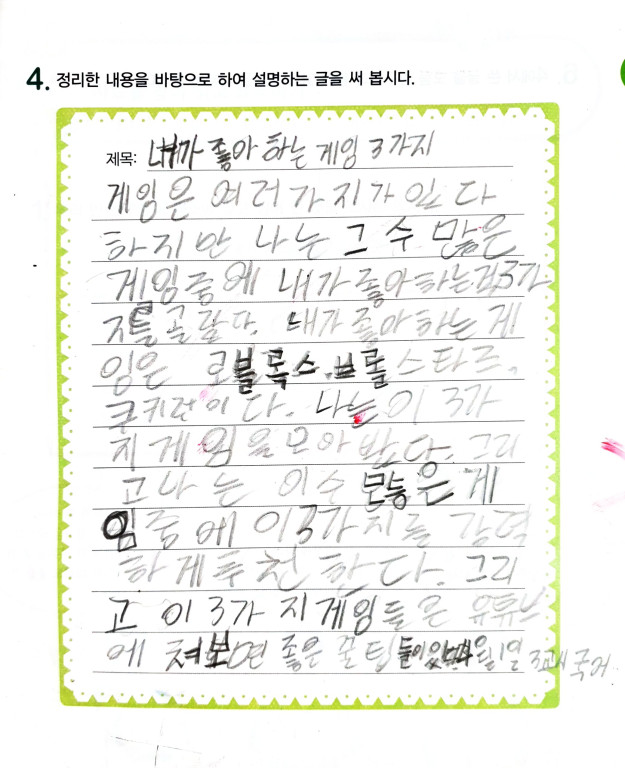 4. 정리한 내용을 바탕으로 하여 설명하는 글을 써 봅시다.
제목: 내가 좋아 하는 게임 3가지
게임은 여러가지가 있다
하지만 나는 그 수 많은
게임중에 내가 좋아하는것3가
지를 골랐다. 내가 좋아하는 게
임은 로블록스, 브롤스타즈,
쿠키런이다. 나는 이 3가
지 게임을 모아 봤다. 그리
고 나는 이 수 많은 게
임 중에 이3가지를 강력
하게 추천 한다. 그리
고 이 3가지 게임들은 유튜브
에 쳐보면 좋은 꿀팁들이있다